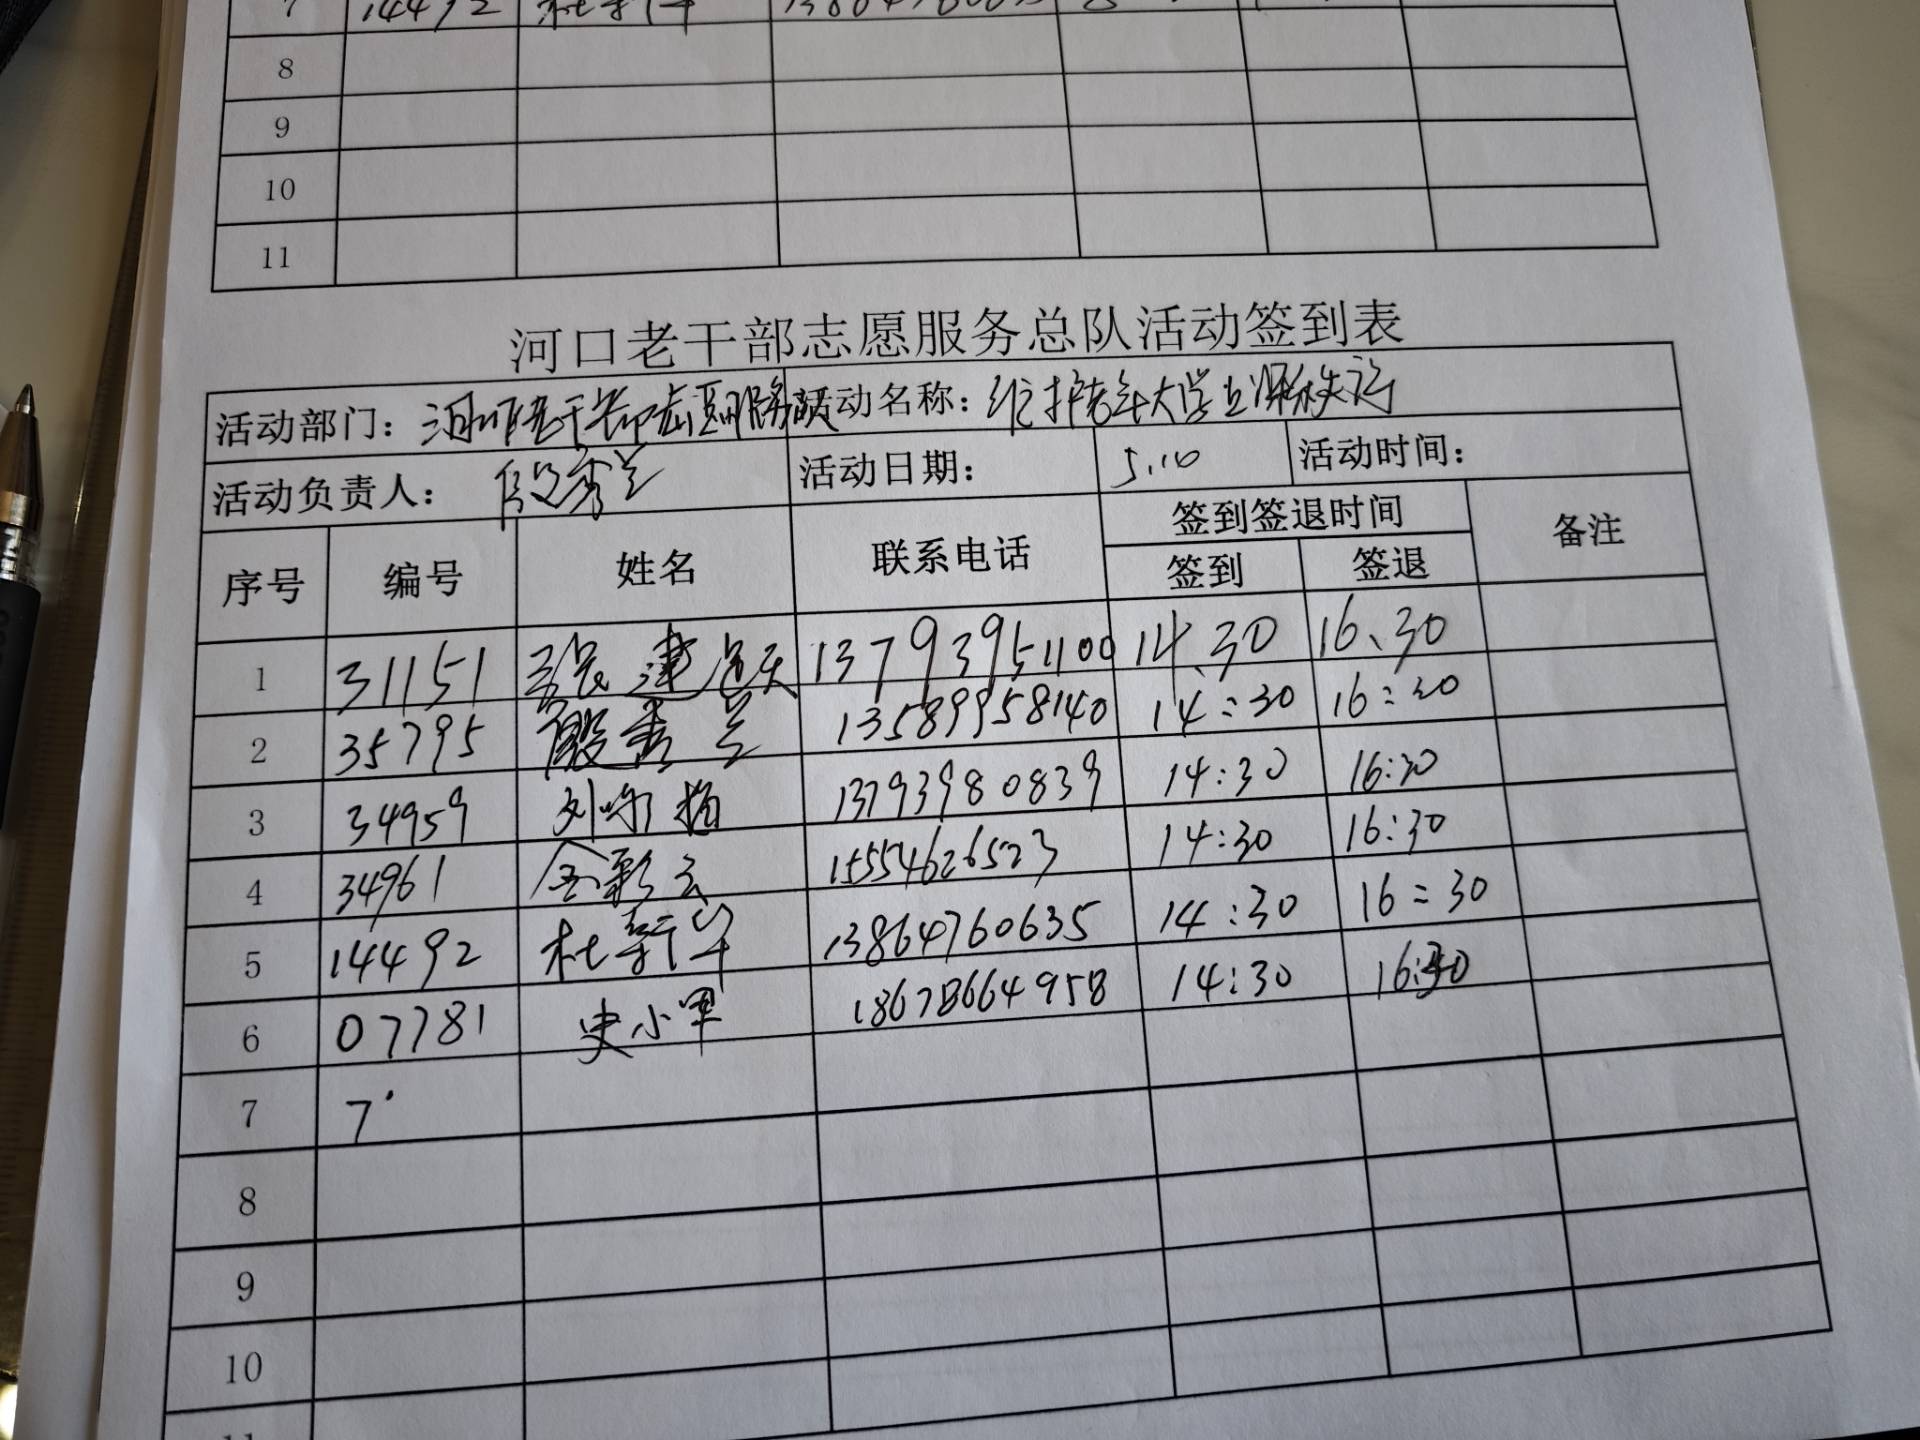 7 14492 杜新华
8
9
10
11
河口老干部志愿服务总队活动签到表
活动部门： 河口老干部志愿服务总队 活动名称：维护老年大学上课秩序
活动负责人： 殷秀兰 活动日期： 5.10 活动时间：
序号 编号 姓名 联系电话 签到签退时间 备注
签到 签退
1 31151 张建 13793951100 14.30 16.30
2 35795 殷秀兰 13589958140 14:30 16:30
3 34959 刘 13793980839 14:30 16:30
4 34961 金彩云 15554626523 14:30 16:30
5 14492 杜新华 13864760635 14:30 16:30
6 07781 史小军 18678664958 14:30 16:30
7 7
8
9
10
11